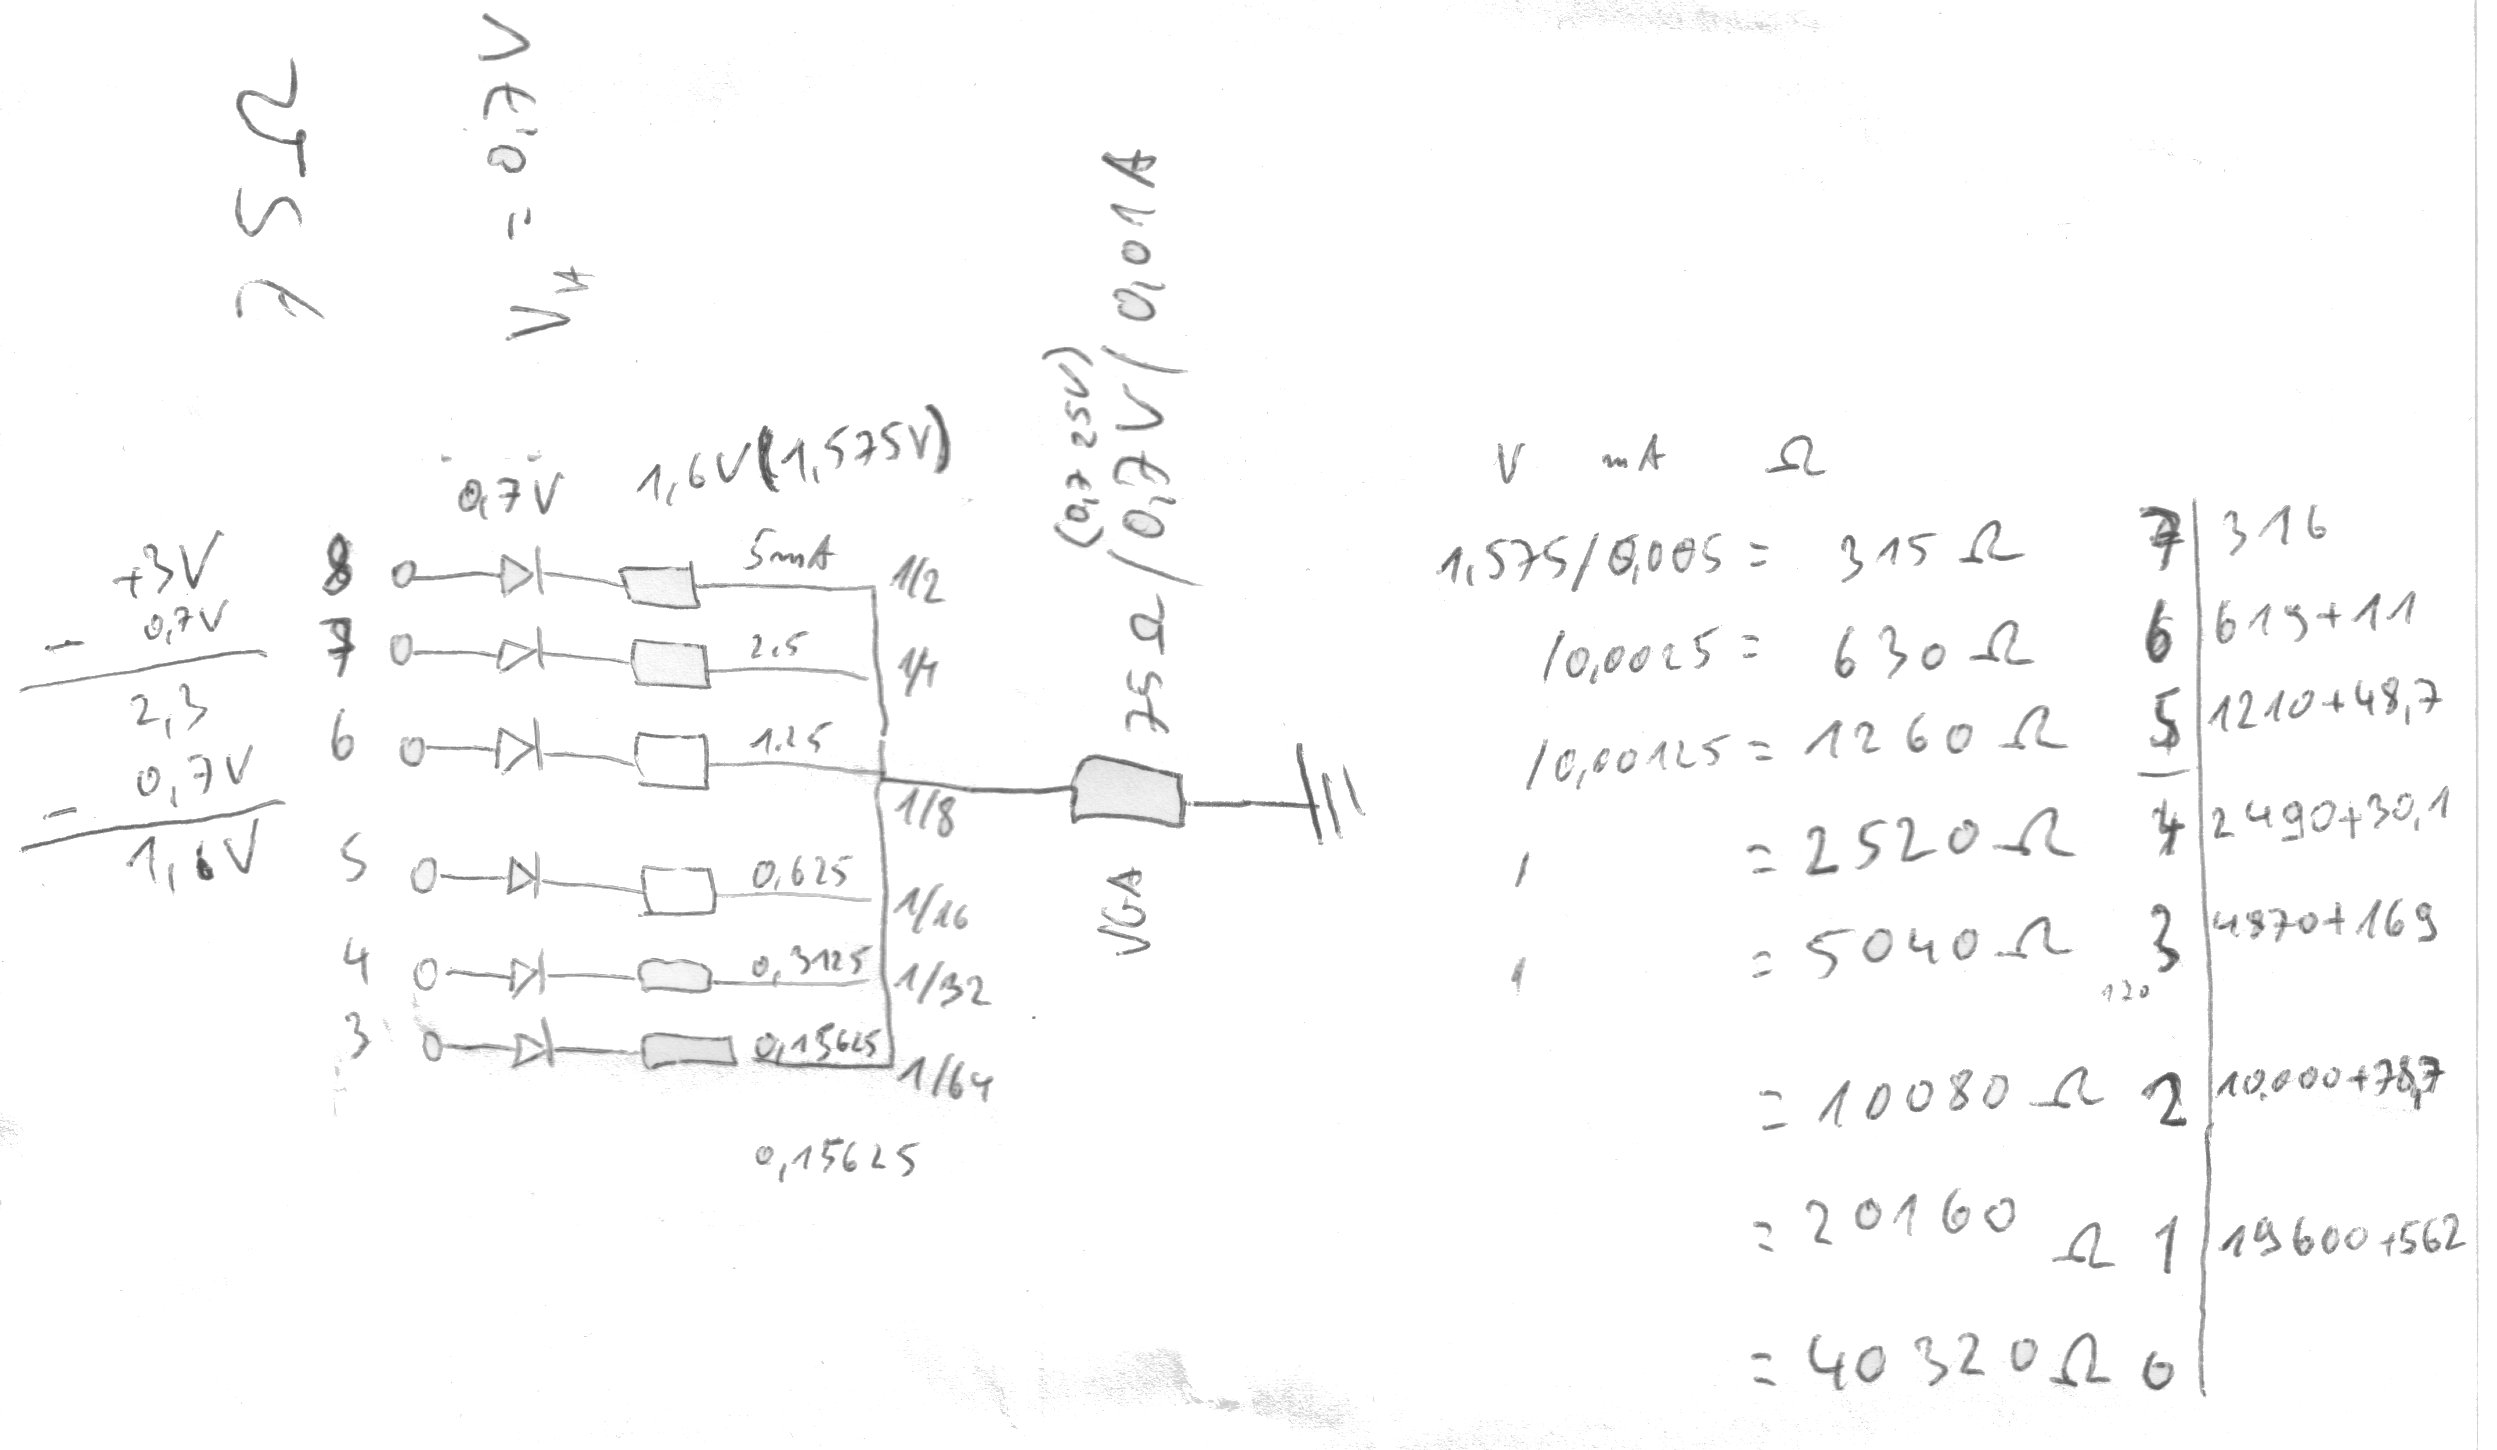 75Ω
V_A = 0,7V
0,7V
1,6V (1,575V)
(0,725V)
75Ω/0,7V/0,01A
VGA
+3V
- 0,7V
2,3
- 0,7V
1,6V
8 5mA 1/2
7 2.5 1/4
6 1.25 1/8
5 0,625 1/16
4 0,3125 1/32
3 0,15625 1/64
0,15625
V mA Ω
1,575/0,005 = 315 Ω 7 316
/0,0025 = 630 Ω 6 619+11
/0,00125 = 1260 Ω 5 1210+48,7
/ = 2520 Ω 4 2490+30,1
/ = 5040 Ω 3 4870+169
120
= 10080 Ω 2 10.000+78,7
= 20160 Ω 1 19600+562
= 40320 Ω 0